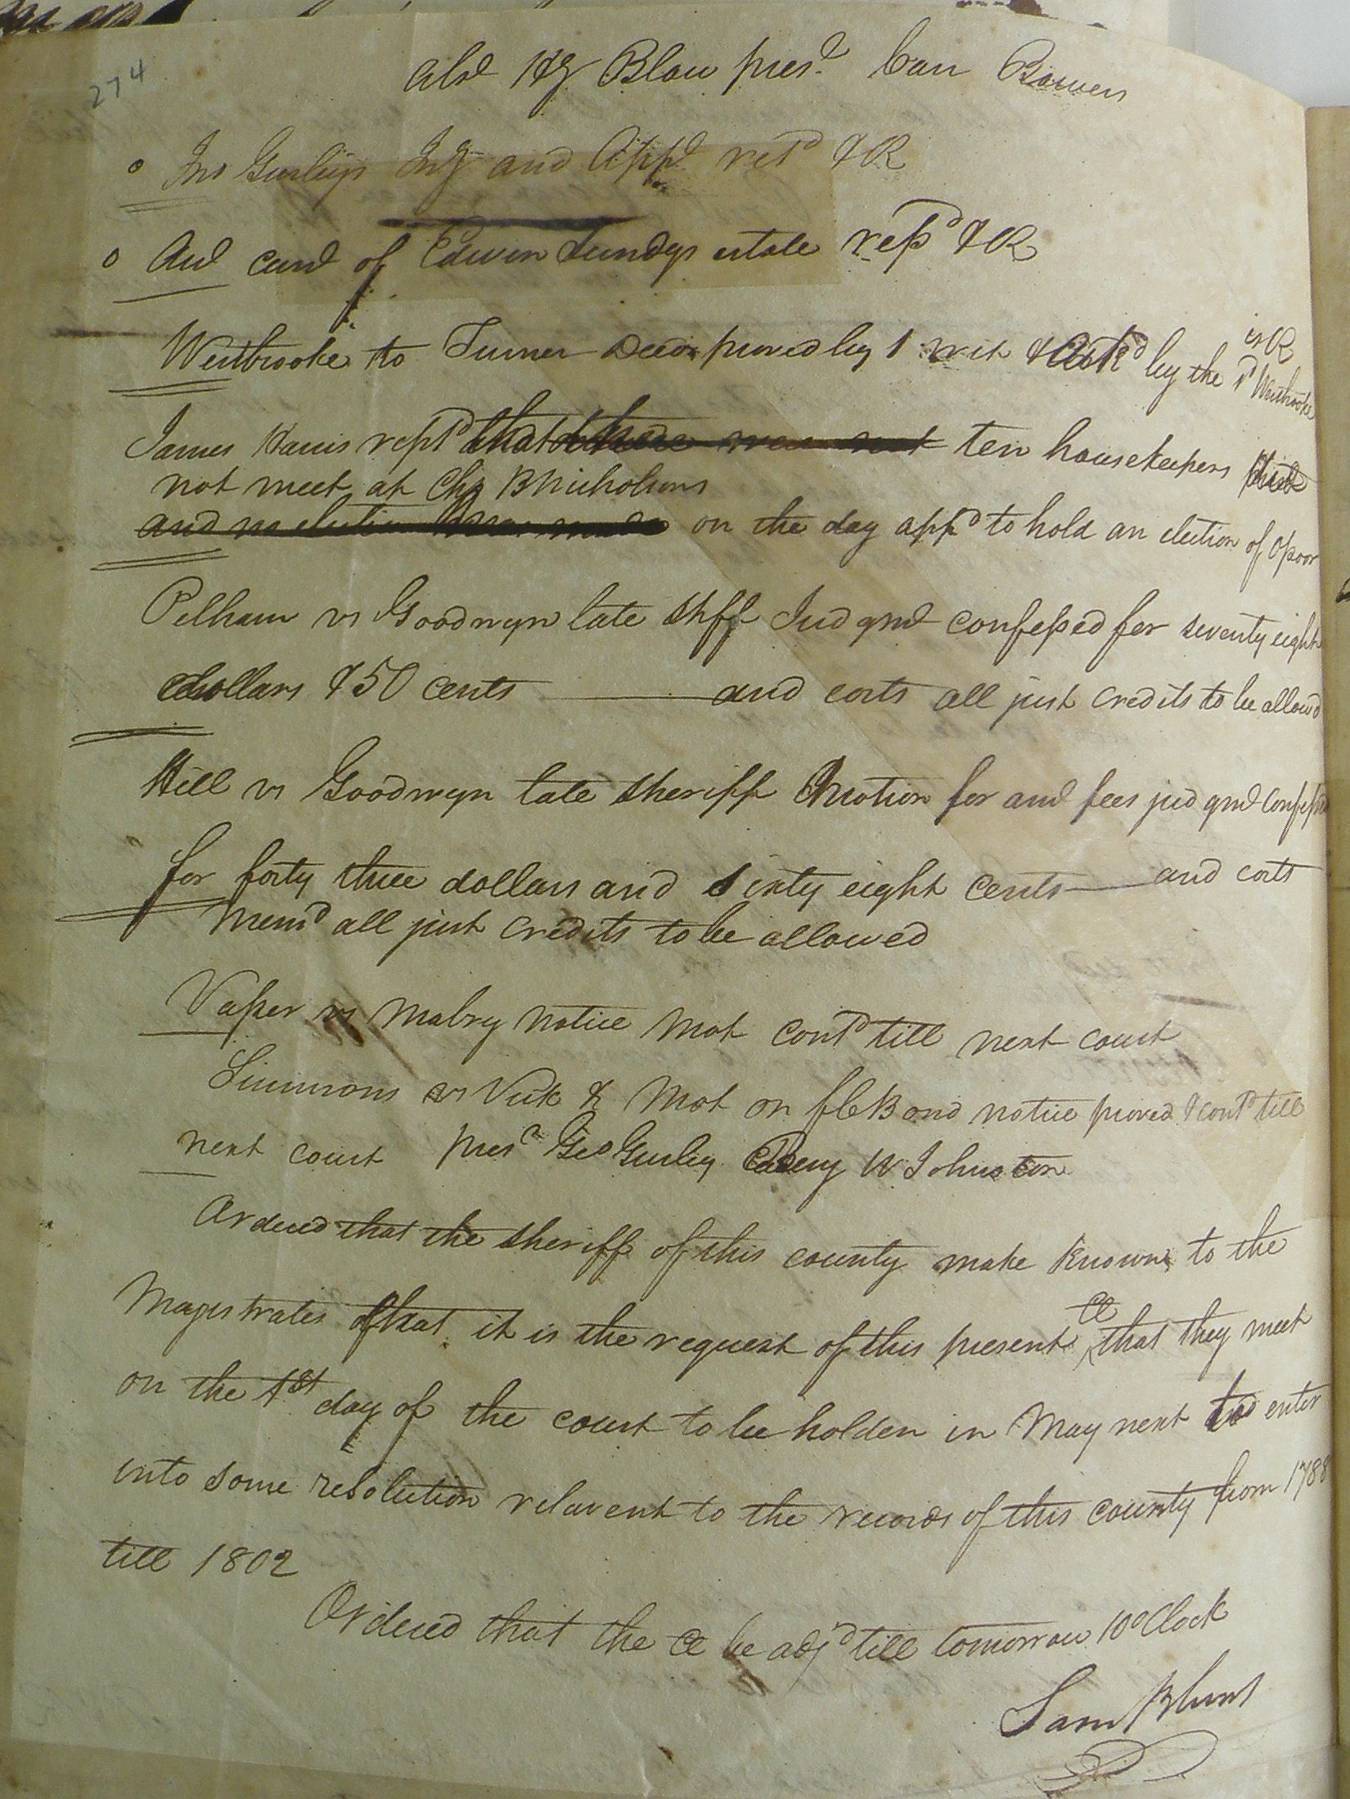 274
abs.d Hy Blow pres.t Carr Bowers
Jno Gurleys Inv and App.d ret.d & R
Aud curd of Edwin Lundys estate rep.d & R
Westbrooke to Turner Deed proved by 1 wit & Ack.d by the s.d Westbrooke
is R
James Harris rep.d that there were not ten housekeepers did
not meet at Chs Bnicholsons
and no election was made on the day app.d to hold an election of Opoor
Pelham vs Goodwyn late Shff Judgmd confessed for seventy eight
dollars & 50 cents and costs all just credits to be allowd
Hill vs Goodwyn late sheriff motion for amd fees judgmd confessd
for forty three dollars and sixty eight cents and costs
Mem.d all just credits to be allowed
Vasser vs Mabry notice Mot cont.d till next court
Simmons vs Vick & Mot on Bond notice proved & cont.d till
next court pres.t Geo Gurley W Johnston
Ordered that the sheriff of this county make known to the
Magistrates that it is the request of this present Ct that they meet
on the 1st day of the court to be holden in May next to enter
into some resolution relavent to the records of this county from 1788
till 1802
Ordered that the Ct be adj.d till tomorrow 10 oClock
Sam Blunt